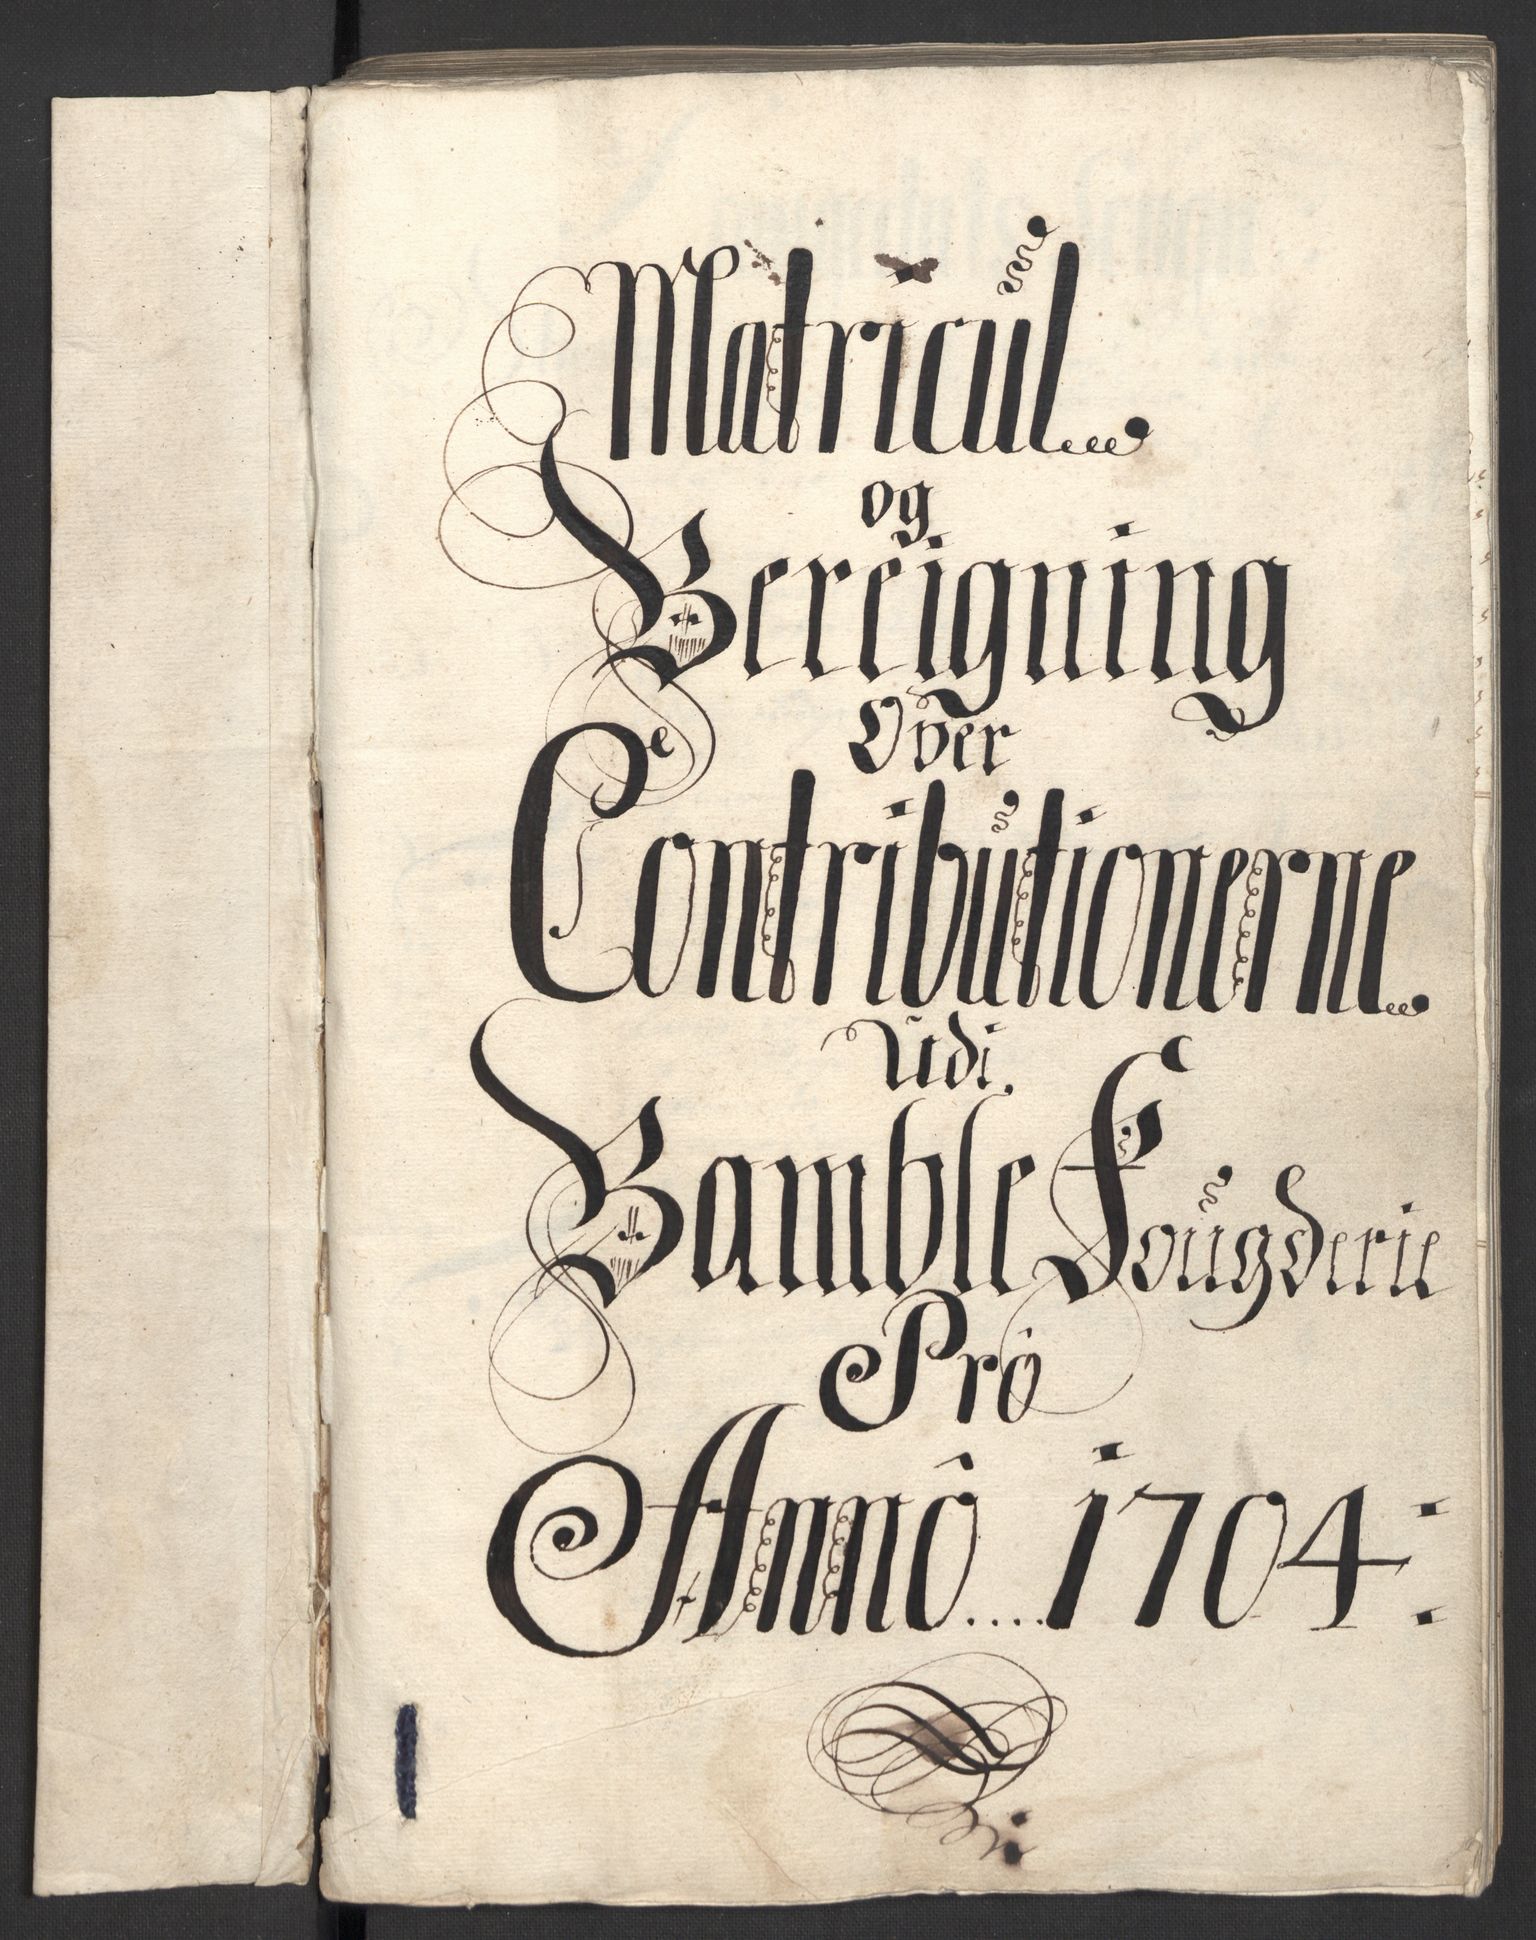 Matricul
og
Bereigning
Over
Contributionerne
Udi.
Bamble Fougderie
Pro
Anno .... 1704: